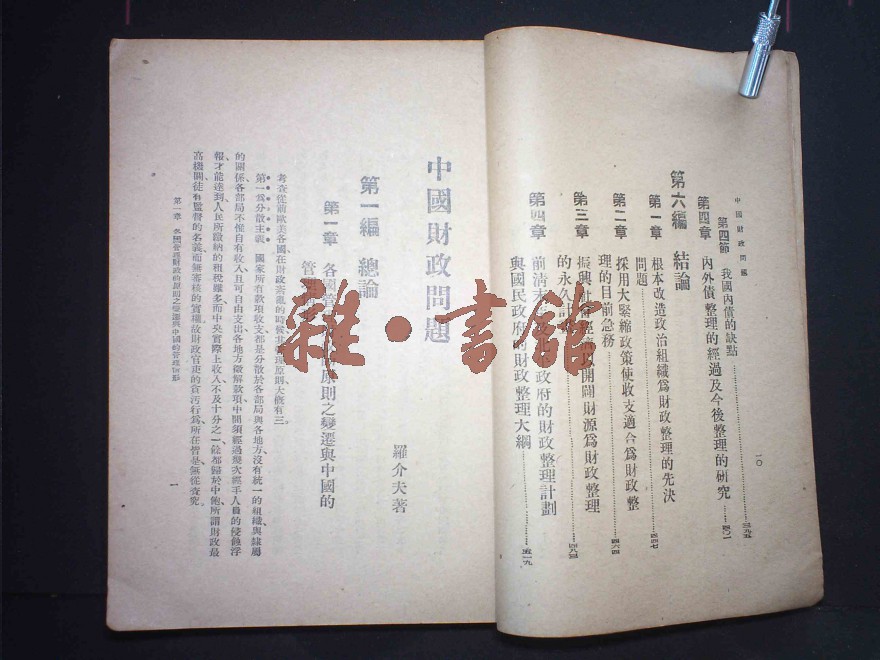 中國財政問題
一〇
第四節 我國內債的缺點……三九五
第四章 內外債整理的經過及今後整理的研究……四〇一
第六編 結論
第一章 根本改造政治組織爲財政整理的先決
問題……四四七
第二章 採用大緊縮政策使收支適合爲財政整
理的目前急務……四六四
第三章 振興社會經濟以開闢財源爲財政整理
的永久計
第四章 前清末 政府的財政整理計劃
與國民政府 財政整理大綱……五一九
中國財政問題
羅介夫著
第一編 總論
第一章 各國管 原則之變遷與中國的
管
考查從前歐美各國在財政紊亂的時候其 理原則大槪有三。
第一爲分散主義 國家所有款項收支都是分散於各部局與各地方沒有統一的組織與隸屬
的關係各部局不惟自有收入且可自由支出各地方徵解款項中間須經過幾次經手人員的侵蝕浮
報才能達到人民所繳納的租稅雖多而中央實際上收入不及十分之一餘都歸於中飽所謂財政最
高機關徒有監督的名義而無審核的實權故財政官吏的貪污行爲所在皆是無從查究。
第一章 各國管理財政的原則之變遷與中國的管理情形
一
雜·書館